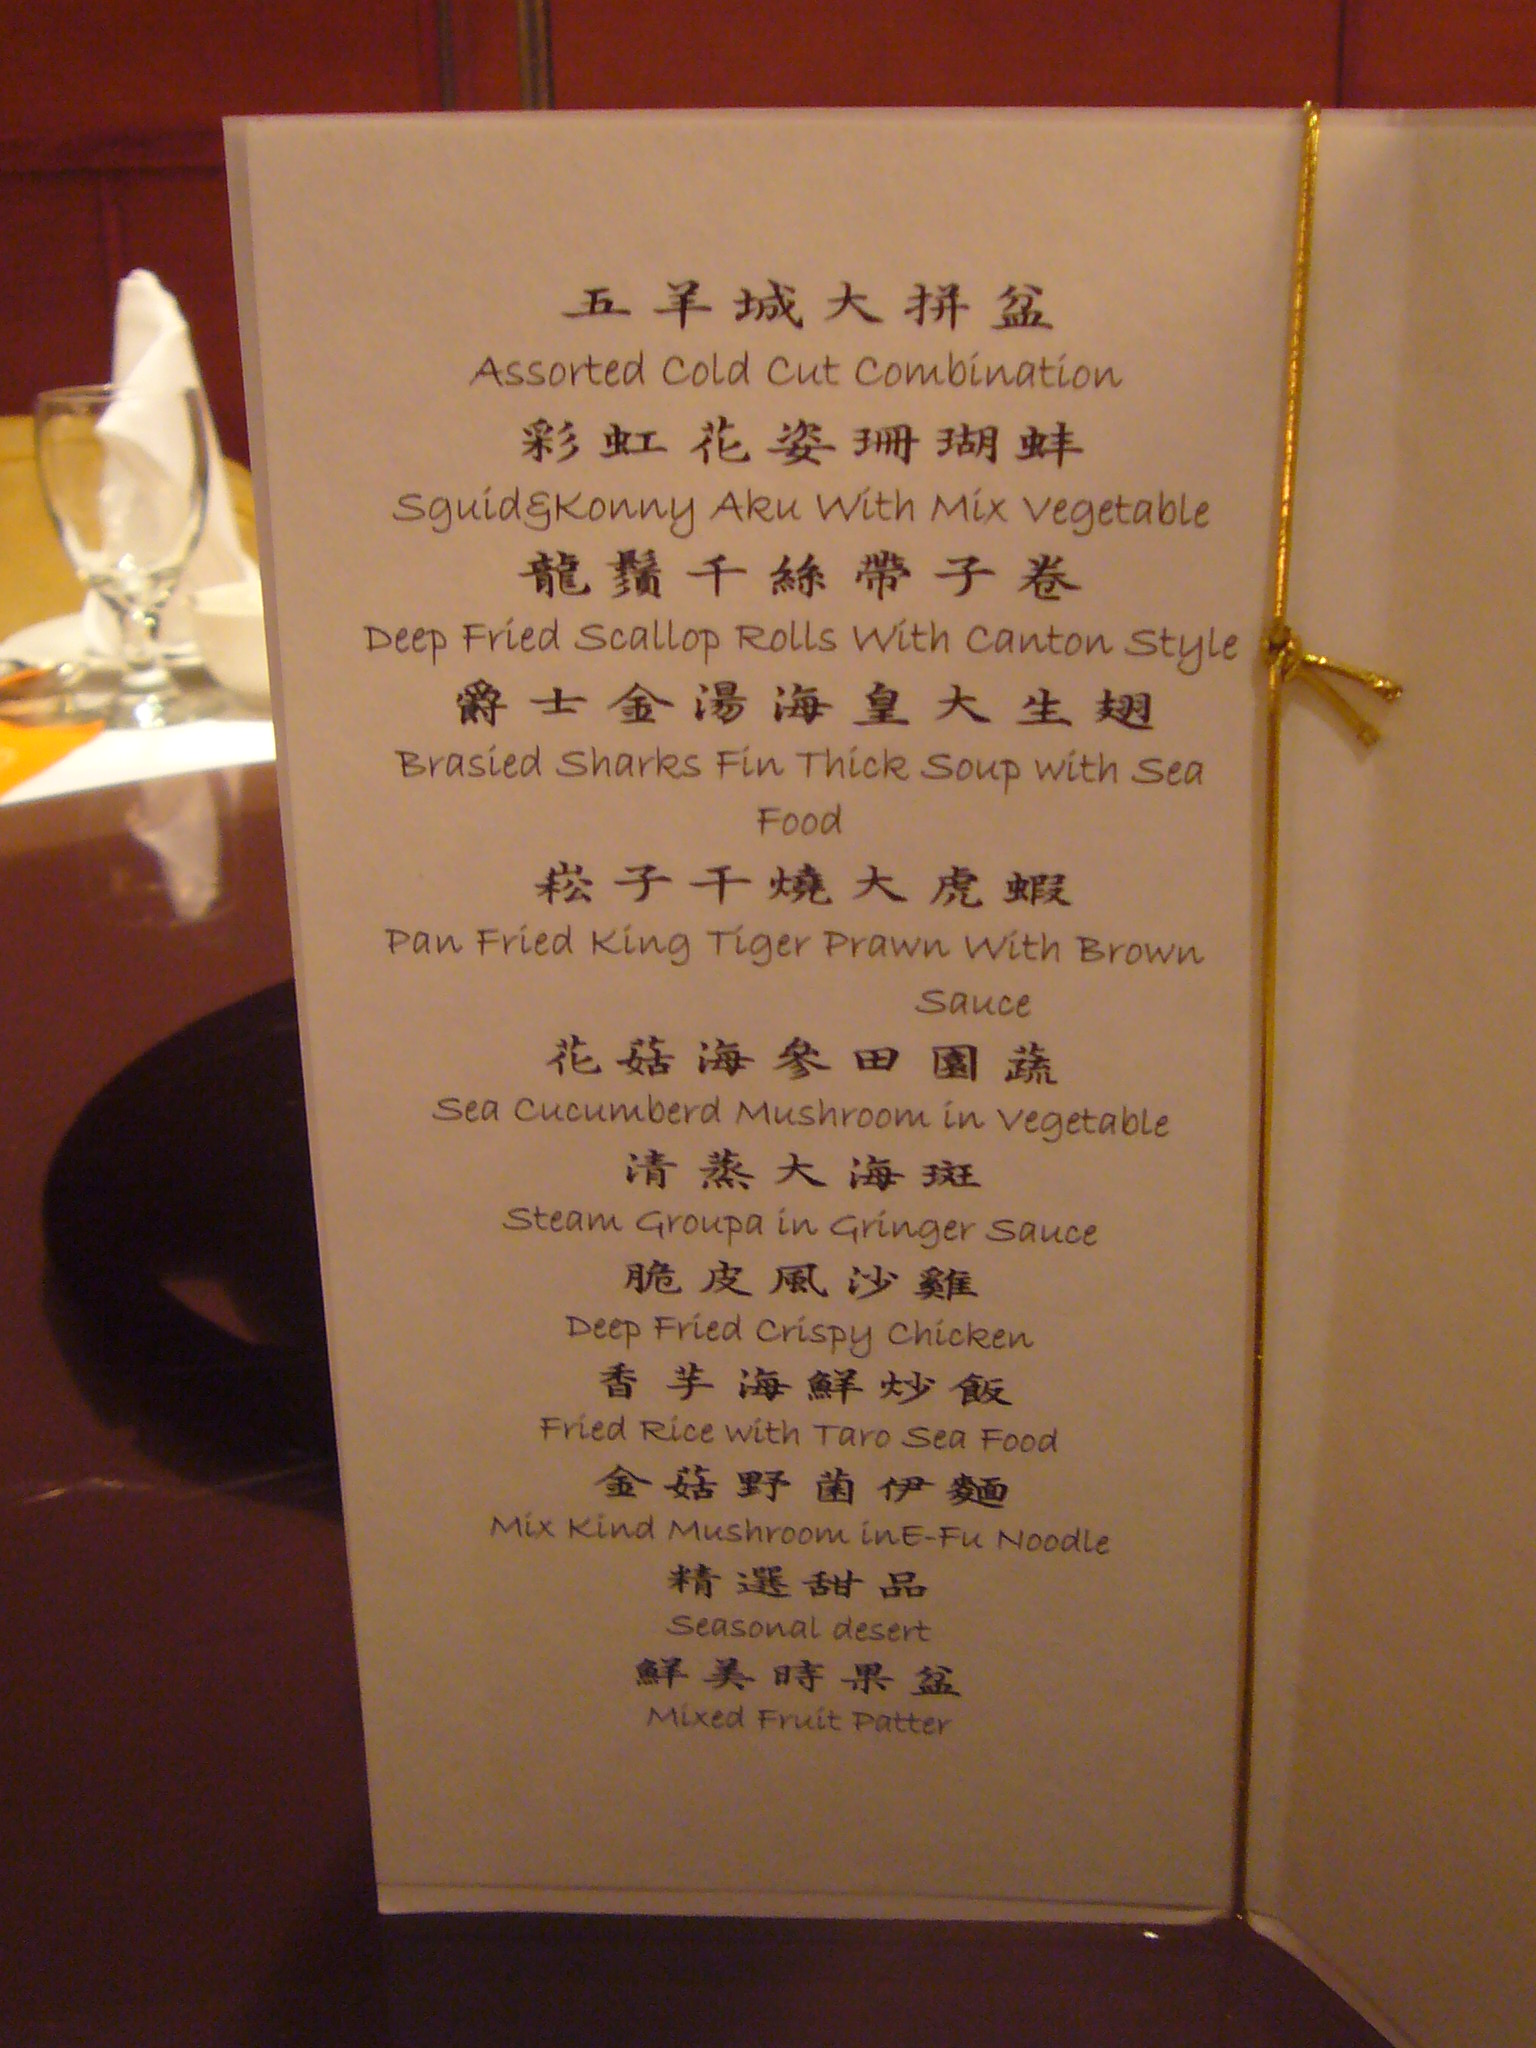 五羊城大拼盆
Assorted Cold Cut Combination
彩虹花姿珊瑚蚌
Sguid&Konny Aku With Mix Vegetable
龍鬚千絲帶子卷
Deep Fried Scallop Rolls With Canton Style
爵士金湯海皇大生翅
Brasied Sharks Fin Thick Soup with Sea
Food
崧子干燒大虎蝦
Pan Fried King Tiger Prawn With Brown
Sauce
花菇海參田園蔬
Sea Cucumberd Mushroom in Vegetable
清蒸大海斑
Steam Groupa in Gringer Sauce
脆皮風沙雞
Deep Fried Crispy Chicken
香芋海鮮炒飯
Fried Rice with Taro Sea Food
金菇野菌伊麵
Mix Kind Mushroom inE-Fu Noodle
精選甜品
Seasonal desert
鮮美時果盆
Mixed Fruit Patter